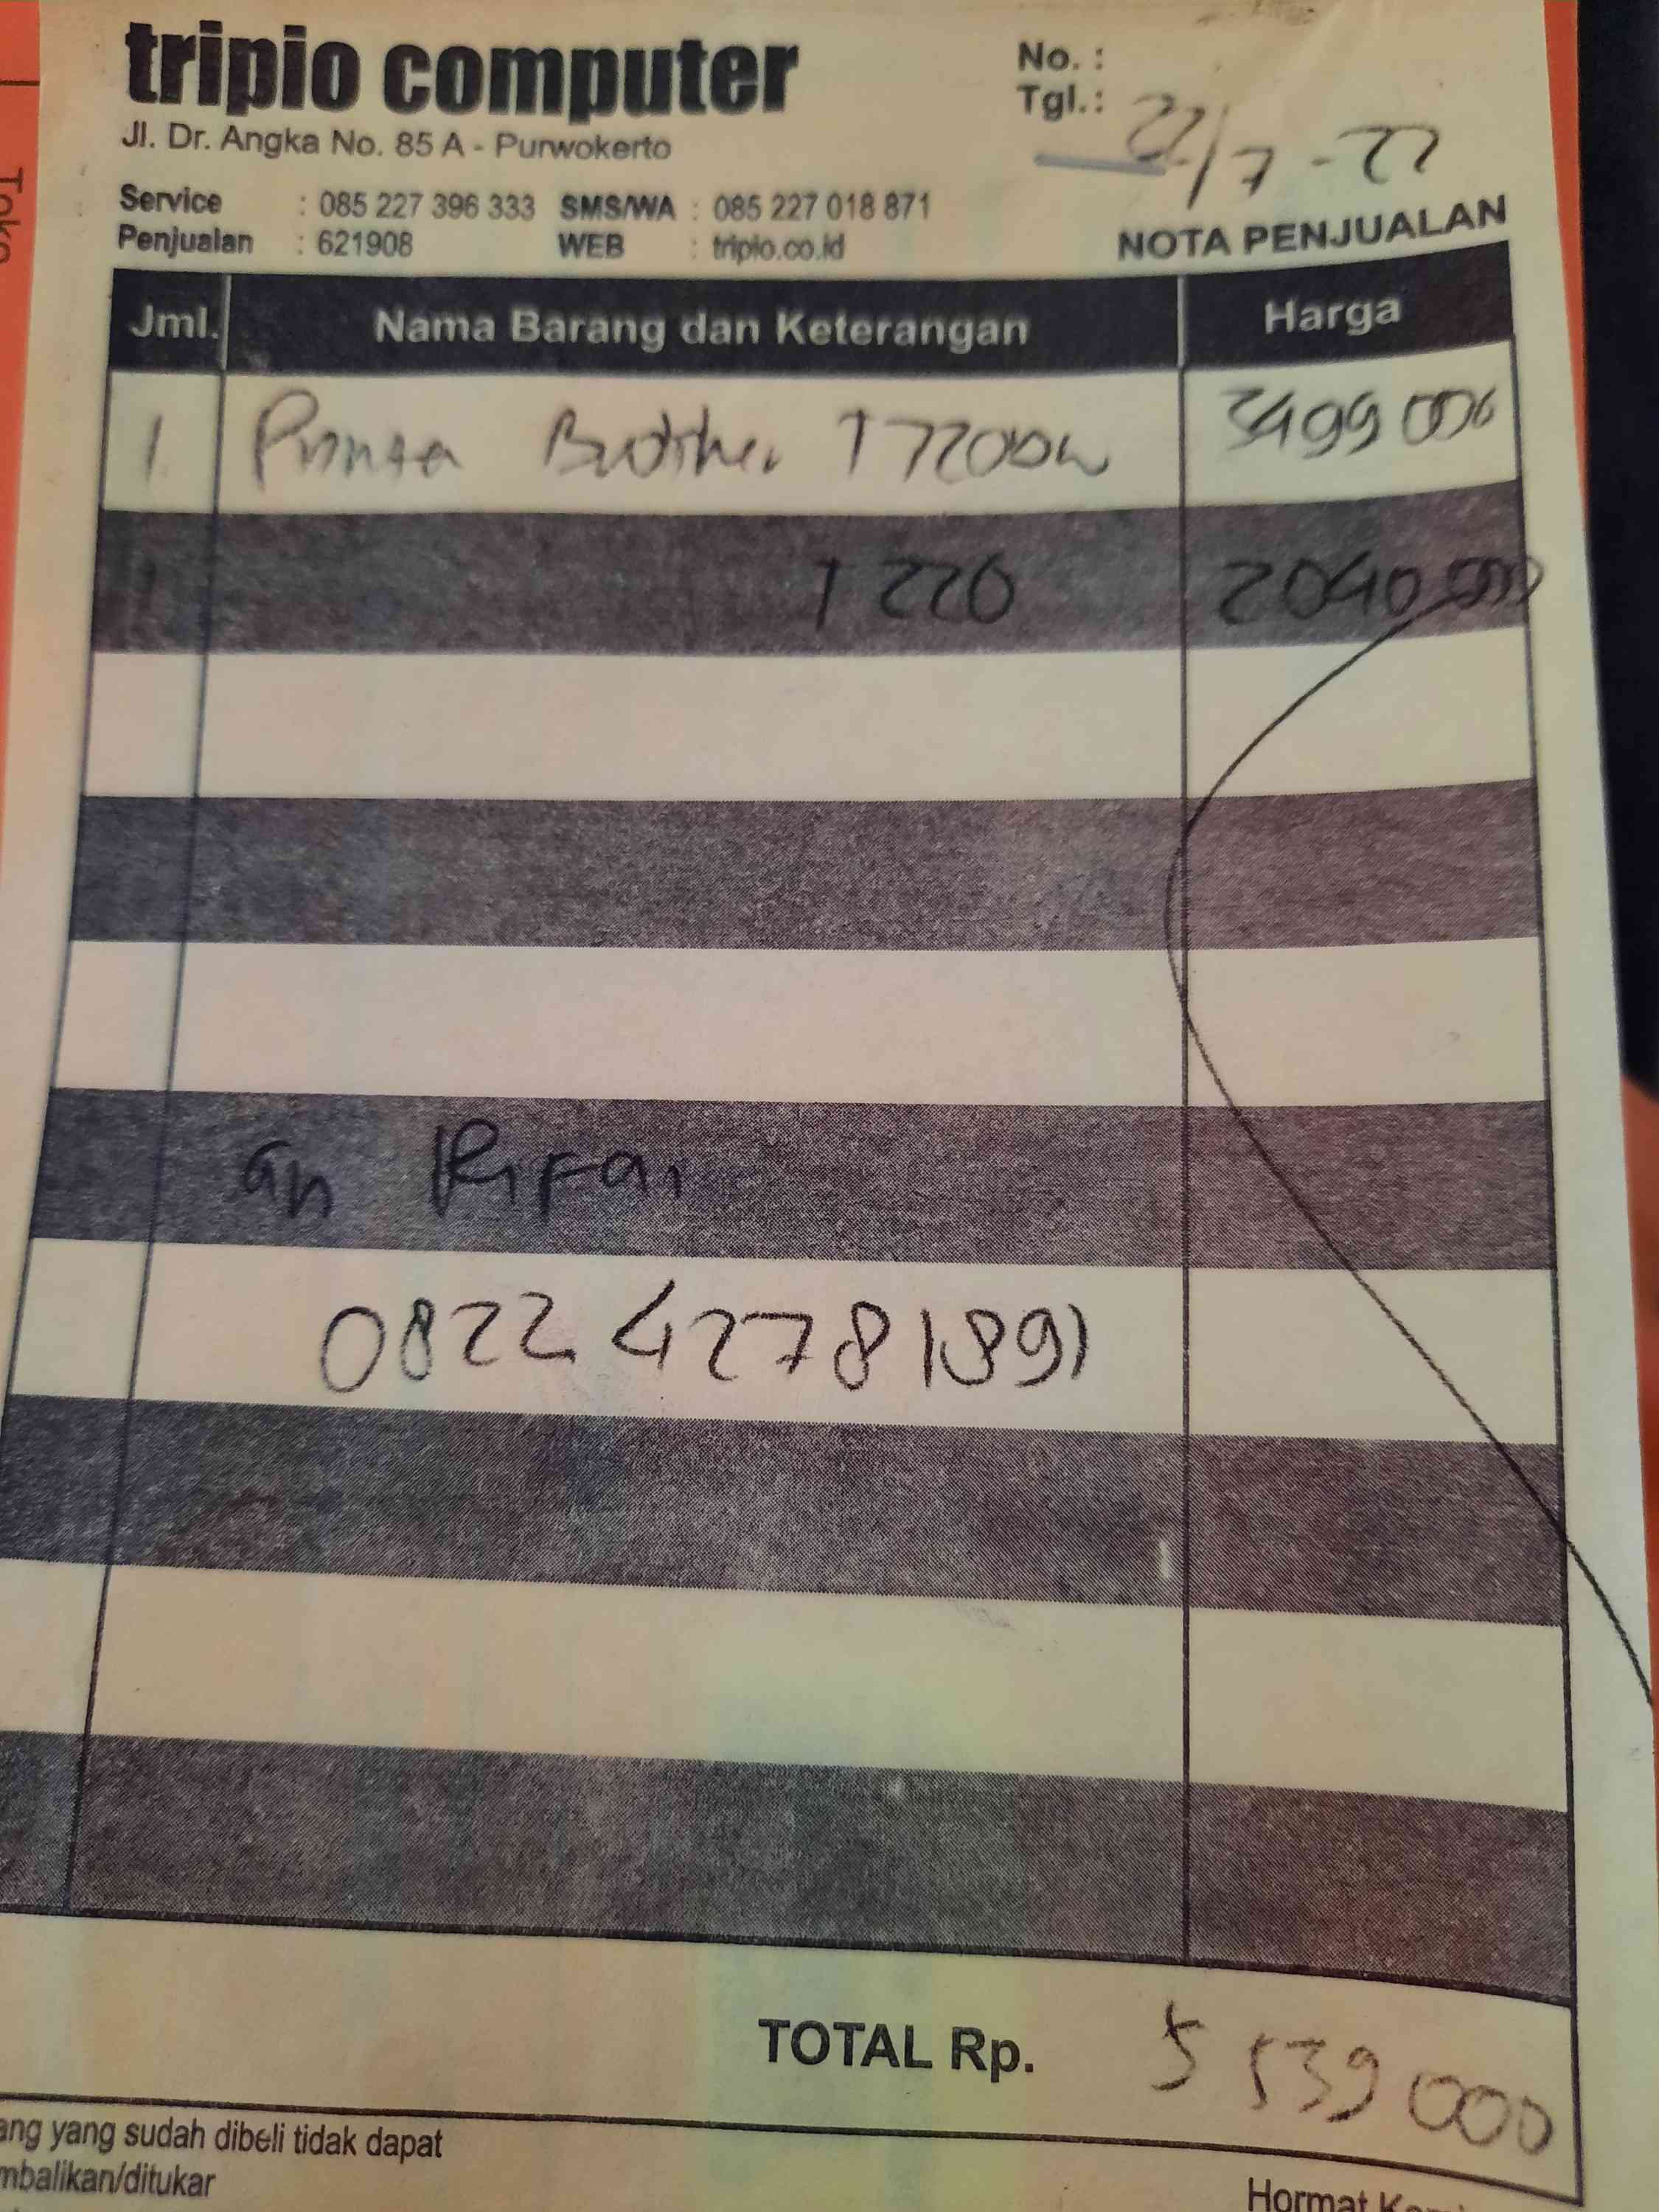 tripio computer
Jl. Dr. Angka No. 85 A - Purwokerto
No. :
Tgl.: 22/7-22
Service : 085 227 396 333 SMS/WA : 085 227 018 871
Penjualan : 621908 WEB : tripio.co.id
NOTA PENJUALAN
Jml. Nama Barang dan Keterangan Harga
1 Printer Brother T720DW 3499 000
1 T 220 2040 000
an Rifai
0822 4278 1891
TOTAL Rp. 5 539 000
ang yang sudah dibeli tidak dapat
mbalikan/ditukar
Hormat
Toko